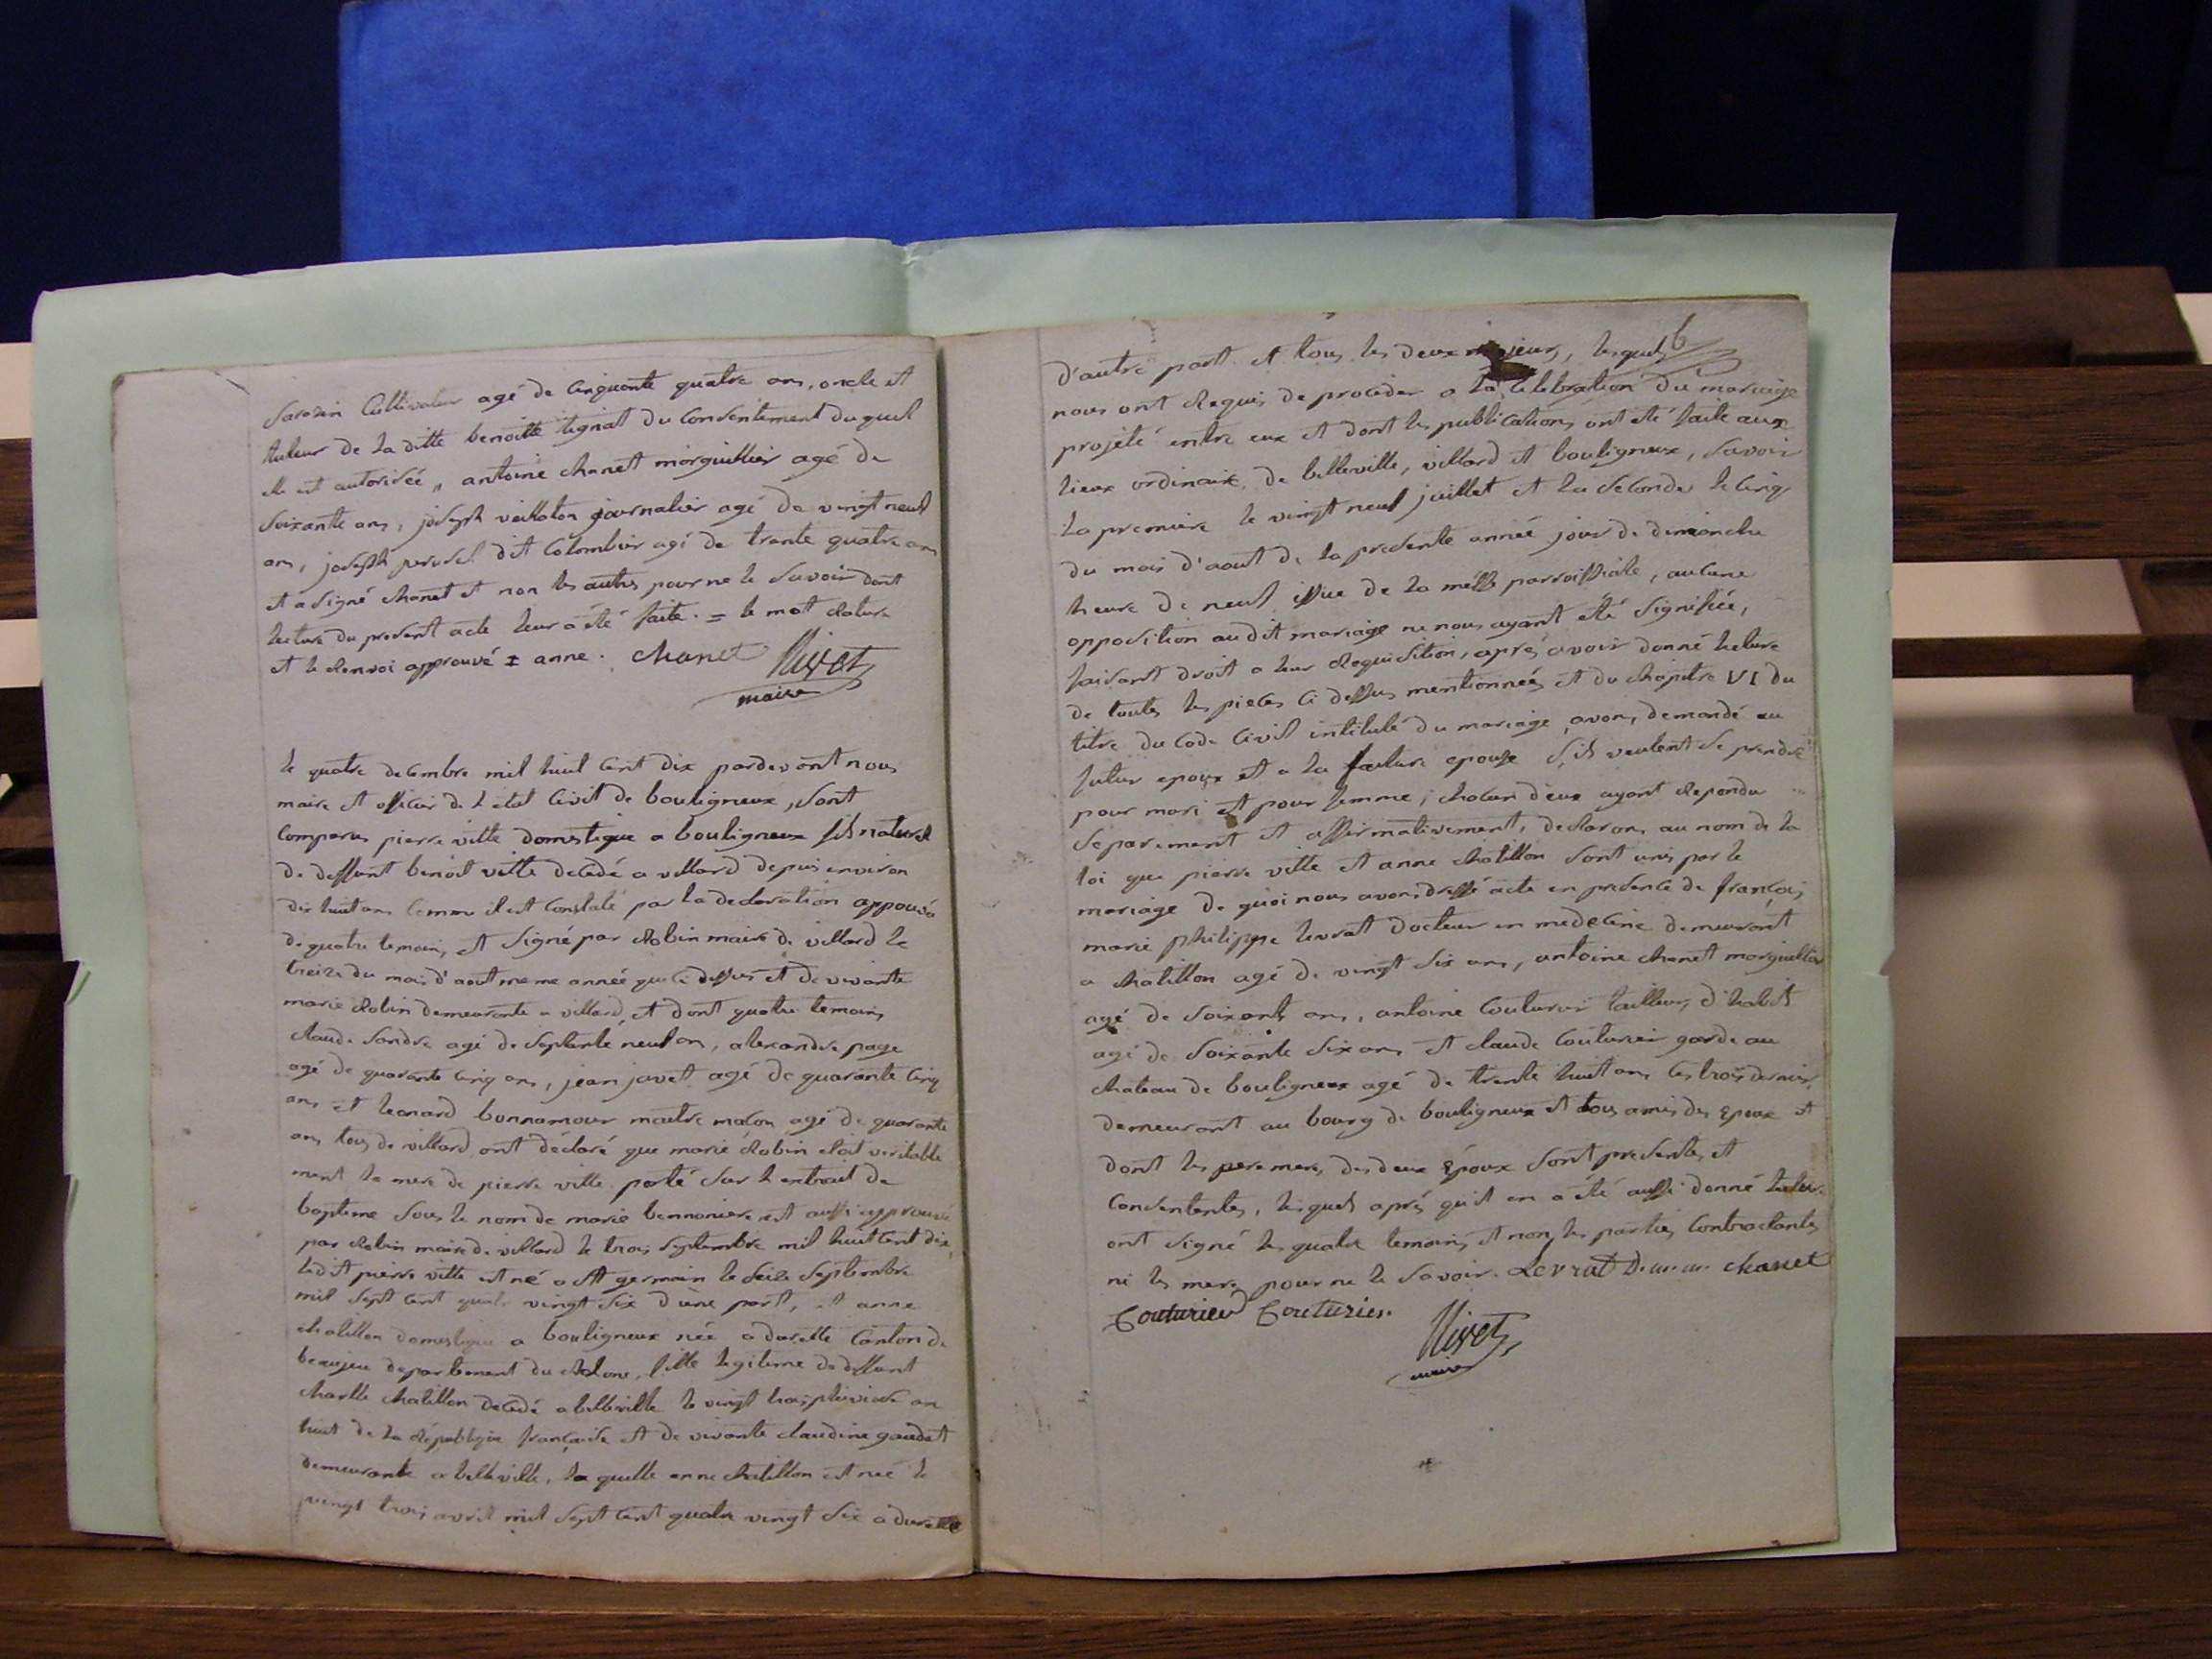 Sarozin Cultivateur agé de Cinquante quatre ans, oncle et
tuteur de la ditte benoitte tignat du Consentement duquel
elle est autorisée,, antoine chanet morguillier agé de
Soixante ans, joseph journalier agé de vingt neuf
ans, joseph dit Colombier agé de trente quatre ans
et a Signé chanet et non les autres pour ne le Savoir dont
lecture du present acte leur a été faite. = le mot rature
et le renvoi approuvé ± anne. Chanet Nivet
maire
le quatre decembre mil huit Cent dix pardevant nous
maire et officier de l'etat Civil de bouligneux, Sont
Comparus pierre ville domestique a bouligneux fils naturel
de deffunt benoit ville decedé a villard depuis environ
dix huit ans Comme il est Constaté par la declaration appouvé
de quatre temoins, et Signé par Robin maire de villard le
treize du mois d'aout meme année que Ci dessus et de vivante
marie Robin demeurante a villard, et dont quatre temoins
claude Sandre agé de Septente neuf ans, alexandre page
agé de quarante Cinq ans, jean javet agé de quarante Cinq
ans et leonard bonnamour maitre macon agé de quarante
ans tous de villard, ont déclaré que marie Robin etoit veritable
ment la mere de pierre ville porté Sur l'extrait de
bapteme Sous le nom de marie est aussi approuvé
par Robin maire de villard le trois Septembre mil huit Cent dix,
ledit pierre ville est né a St germain le Seize Septembre
mil Sept Cent quatre vingt Six d'une part, et anne
chatillon domestique a bouligneux née a durette Canton de
beaujeu departement du Rhone, fille legitime de deffunt
charlle chatillon decedé a belleville le vingt trois pluviose an
huit de la République française et de vivante claudine gaudet
demeurante a belleville, la quelle anne chatillon est née le
vingt trois avril mil Sept Cent quatre vingt Six a durette
6
d'autre part et tous les deux majeurs, lesquels
nous ont Requis de proceder a la Celebration du mariage
projeté entre eux et dont les publications ont été faite aux
lieux ordinaire, de belleville, villard et bouligneux, Savoir
la premiere le vingt neuf juillet et la Seconde le Cinq
du mois d'aout de la presente année jour de dimanche
heure de neuf issue de la messe parroissiale, aucune
opposition audit mariage ne nous ayant été Signifiée,
faisant droit a leur Requisition, aprés avoir donné lecture
de toutes les pieces Ci dessus mentionnées et du chapitre VI du
titre du Code Civil intitulé du mariage, avons demandé au
futur epoux et a la future epouse S'ils veulent Se prendre
pour mari et pour femme; chacun d'eux ayant Repondu
Separement et affirmativement, declarons au nom de la
loi que pierre ville et anne chatillon Sont unis par le
mariage de quoi nous avons dressé acte en presence de françois
marie philippe levrat docteur en medecine demeurant
a chatillon agé de vingt Six ans, antoine chanet morguillier
agé de Soixante ans, antoine Couturier tailleur d'habits
agé de Soixante Six ans et claude Couturier garde au
chateau de bouligneux agé de trente huit ans les trois derniers
demeurant au bourg de bouligneux et tous amis des epoux et
dont les pere meres des deux Époux Sont presentes et
Consentantes, lesquels aprés qu'il en a été aussi donné lecture
ont Signé les quatre temoins et non les parties Contractantes
ni les meres pour ne le Savoir. Levrat D. m. m. chanet
Couturier Couturier.
Nivet
maire